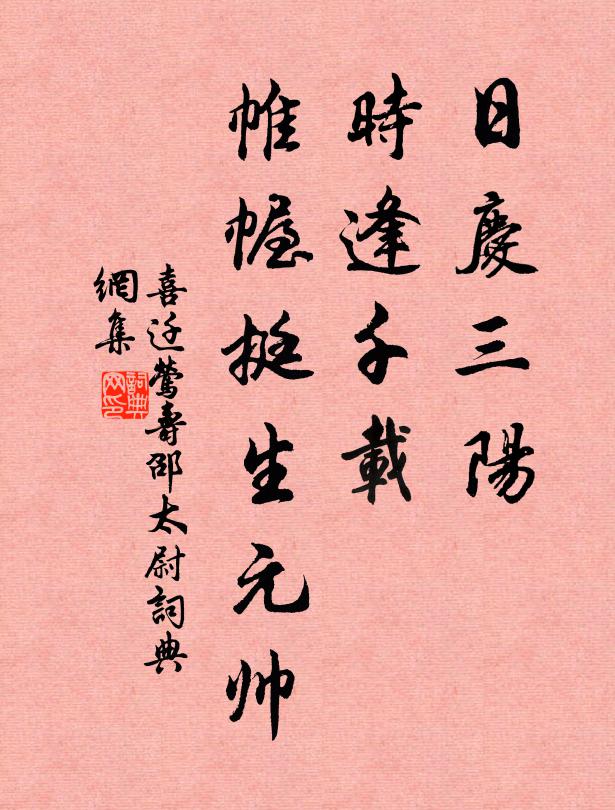 日慶三陽
時逢千載
帷幄挺生元帅
喜迁鶯壽邵太尉詞典
網集
詞典
网印